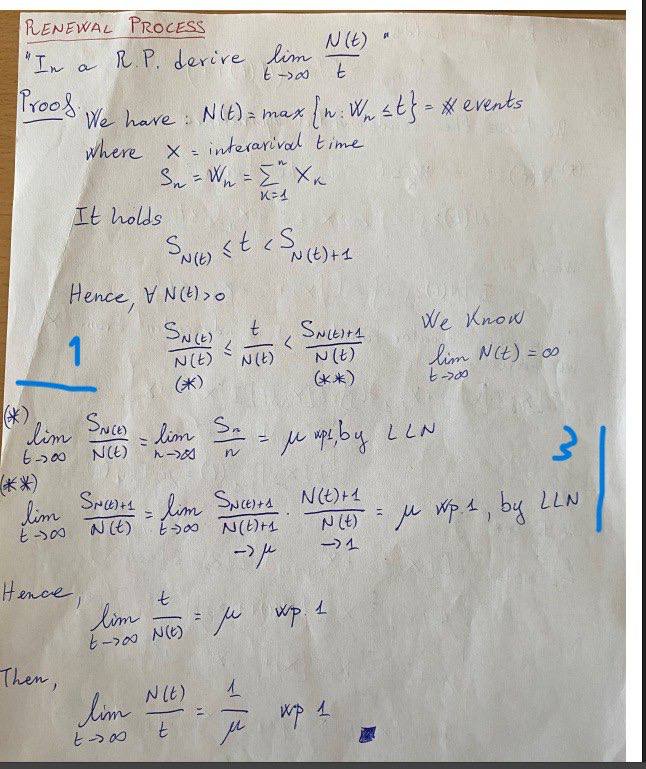 RENEWAL PROCESS
"In a R.P. derive lim t→∞ N(t)/t "
Proof.
We have: N(t) = max {n: Wn ≤ t} = # events
where X = interarival time
Sn = Wn = Σ_{k=1}^{n} Xk
It holds
S_{N(t)} ≤ t < S_{N(t)+1}
Hence, ∀ N(t)>0
S_{N(t)}/N(t) ≤ t/N(t) < S_{N(t)+1}/N(t)
(*) (**)
We Know
lim t→∞ N(t) = ∞
1
(*)
lim t→∞ S_{N(t)}/N(t) = lim n→∞ Sn/n = μ wp1, by LLN
3
(**)
lim t→∞ S_{N(t)+1}/N(t) = lim t→∞ S_{N(t)+1}/N(t)+1 · N(t)+1/N(t) = μ wp.1, by LLN
→μ →1
Hence,
lim t→∞ t/N(t) = μ wp. 1
Then,
lim t→∞ N(t)/t = 1/μ wp 1